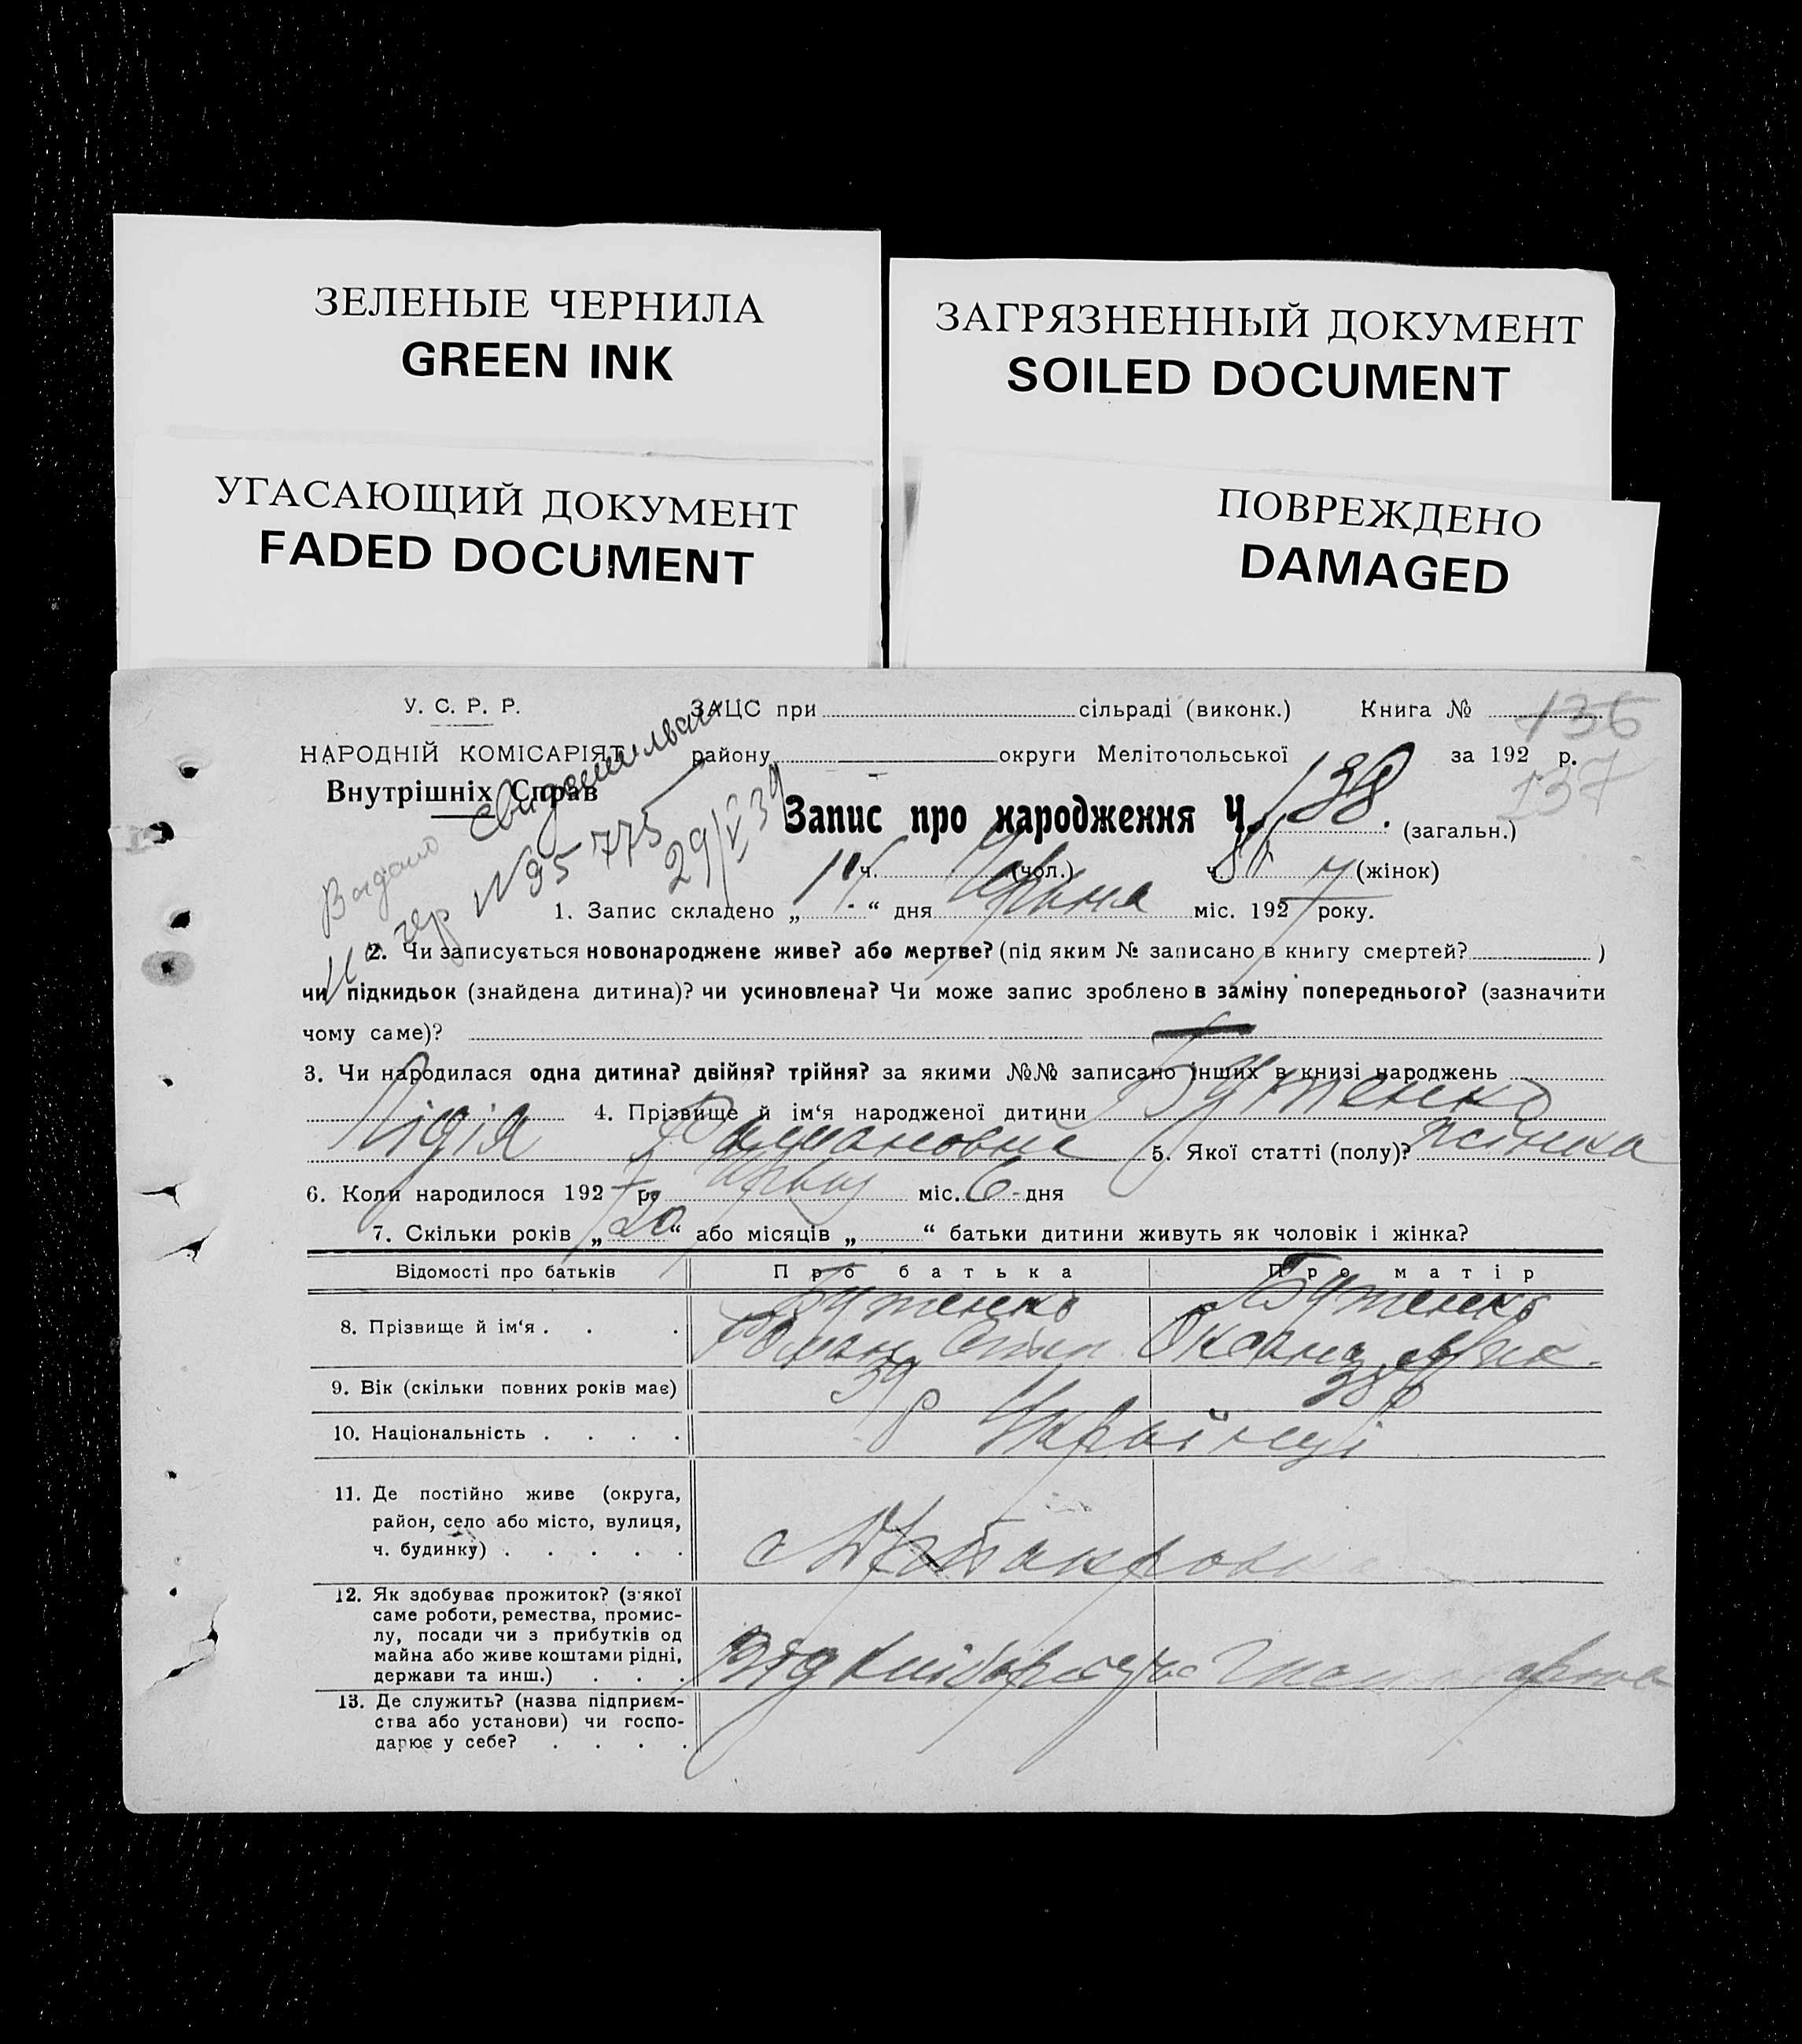 ЗЕЛЕНЫЕ ЧЕРНИЛА
GREEN INK
ЗАГРЯЗНЕННЫЙ ДОКУМЕНТ
SOILED DOCUMENT
УГАСАЮЩИЙ ДОКУМЕНТ
FADED DOCUMENT
ПОВРЕЖДЕНО
DAMAGED
У. С. Р. Р.
ЗАЦС при сільраді (виконк.) Книга № 136
НАРОДНІЙ КОМІСАРІЯТ району округи Мелітопольської за 192 р.
137
Внутрішніх Справ
Выдано свидетельство
№ 95775
29/V 39
Запис про народження Ч. 138. (загальн.)
ч. (чол.) ч. (жінок)
1. Запис складено „ “ дня Червня міс. 1927 року.
2. Чи записується новонароджене живе? або мертве? (під яким № записано в книгу смертей? )
чи підкидьок (знайдена дитина)? чи усиновлена? Чи може запис зроблено в заміну попереднього? (зазначити
чому саме)?
3. Чи народилася одна дитина? двійня? трійня? за якими №№ записано інших в книзі народжень
4. Прізвище й ім‘я народженої дитини Бутенко
Лідія Романовна 5. Якої статті (полу)? жінка
6. Коли народилося 1927 р. міс. 6 дня
7. Скільки років „20“ або місяців „ “ батьки дитини живуть як чоловік і жінка?
Відомості про батьків Про батька Про матір
8. Прізвище й ім‘я . . . Бутенко Бутенко
Роман Оксана
9. Вік (скільки повних років має) 39 р 38 р
10. Національність . . . . Українці
11. Де постійно живе (округа,
район, село або місто, вулиця,
ч. будинку) . . . . .
12. Як здобуває прожиток? (з‘якої
саме роботи, ремества, промис-
лу, посади чи з прибутків од
майна або живе коштами рідні,
держави та инш.) . . . Від
13. Де служить? (назва підприєм-
ства або установи) чи госпо-
дарює у себе? . . . .